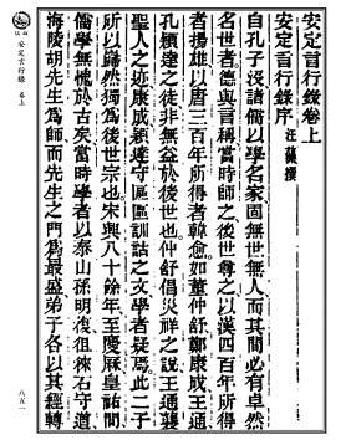 安定言行錄卷上
安定言行錄序 汪藻撰
自孔子沒諸儒以學名家固無世無人而其間必有卓然
名世者德與言稱當時師之後世尊之以漢四百年所得
者揚雄以唐三百年所得者韓愈如董仲舒鄭康成王通
孔穎達之徒非無益於後世也仲舒倡災祥之說王通襲
聖人之迹康成穎達守區區訓詁之文學者疑焉此二子
所以巋然獨為後世宗也宋興八十餘年至慶曆皇祐間
儒學無愧於古矣當時學者以泰山孫明復徂徠石守道
海陵胡先生為師而先生之門為最盛弟子各以其經轉
安定言行錄 卷上
八五一